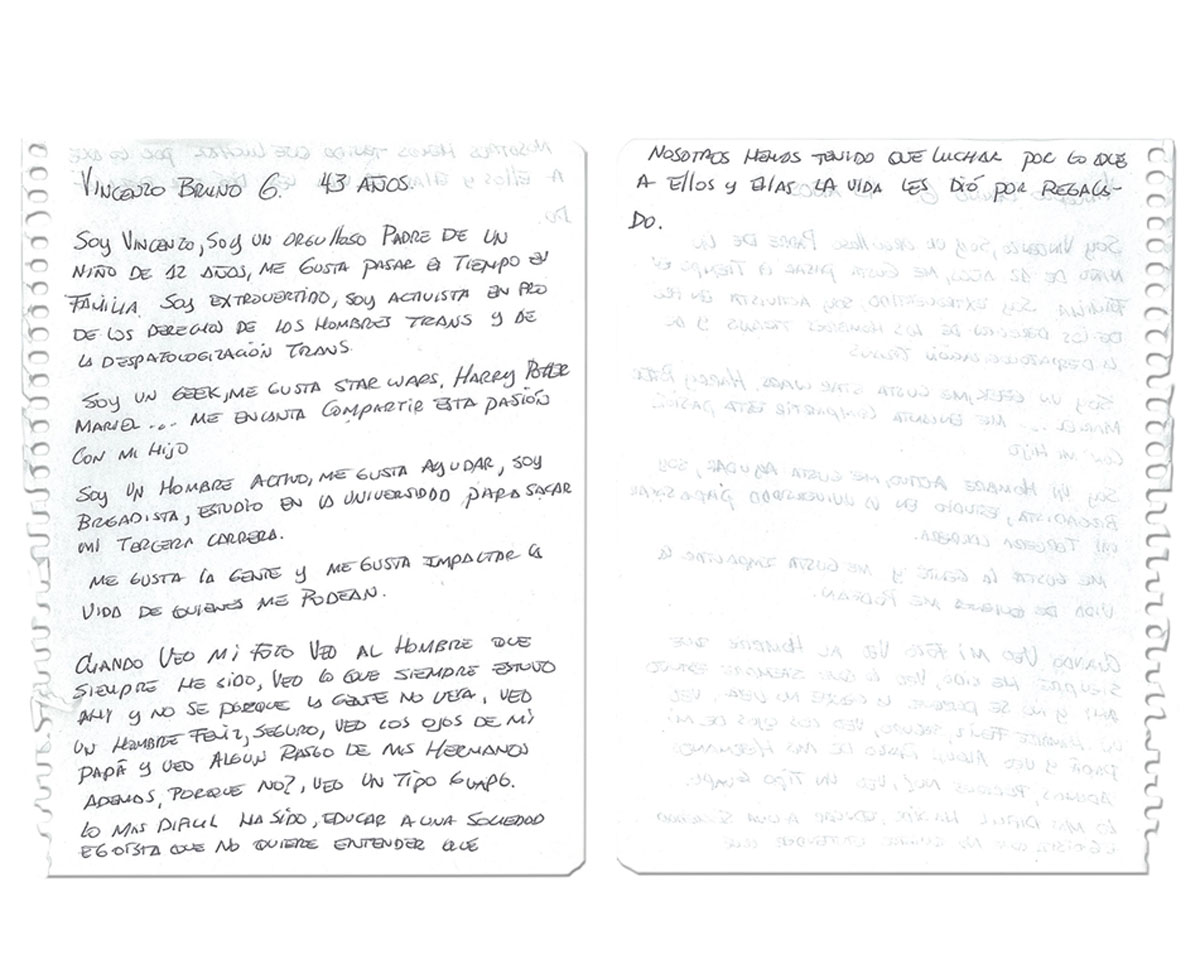 VINCENZO BRUNO G. 43 AÑOS.
SOY VINCENZO, SOY UN ORGULLOSO PADRE DE UN
NIÑO DE 12 AÑOS, ME GUSTA PASAR EL TIEMPO EN
FAMILIA. SOY EXTROVERTIDO, SOY ACTIVISTA EN PRO
DE LOS DERECHOS DE LOS HOMBRES TRANS Y DE
LA DESPATOLOGIZACIÓN TRANS.
SOY UN GEEK, ME GUSTA STAR WARS, HARRY POTTER
MARVEL... ME ENCANTA COMPARTIR ESTA PASIÓN
CON MI HIJO
SOY UN HOMBRE ACTIVO, ME GUSTA AYUDAR, SOY
BREGADISTA, ESTUDIO EN LA UNIVERSIDAD PARA SACAR
MI TERCERA CARRERA.
ME GUSTA LA GENTE Y ME GUSTA IMPACTAR LA
VIDA DE QUIENES ME RODEAN.
CUANDO VEO MI FOTO VEO AL HOMBRE QUE
SIEMPRE HE SIDO, VEO LO QUE SIEMPRE ESTUVO
AHY Y NO SE PORQUE LA GENTE NO VEIA, VEO
UN HOMBRE FELIZ, SEGURO, VEO LOS OJOS DE MI
PAPÁ Y VEO ALGUN RASGO DE MIS HERMANOS
ADEMAS, PORQUE NO?, VEO UN TIPO GUAPO.
LO MAS DIFICIL HA SIDO, EDUCAR A UNA SOCIEDAD
EGOÍSTA QUE NO QUIERE ENTENDER QUE
NOSOTROS HEMOS TENIDO QUE LUCHAR POR LO QUE
A ELLOS Y ELLAS LA VIDA LES DIÓ POR REGALA-
DO.